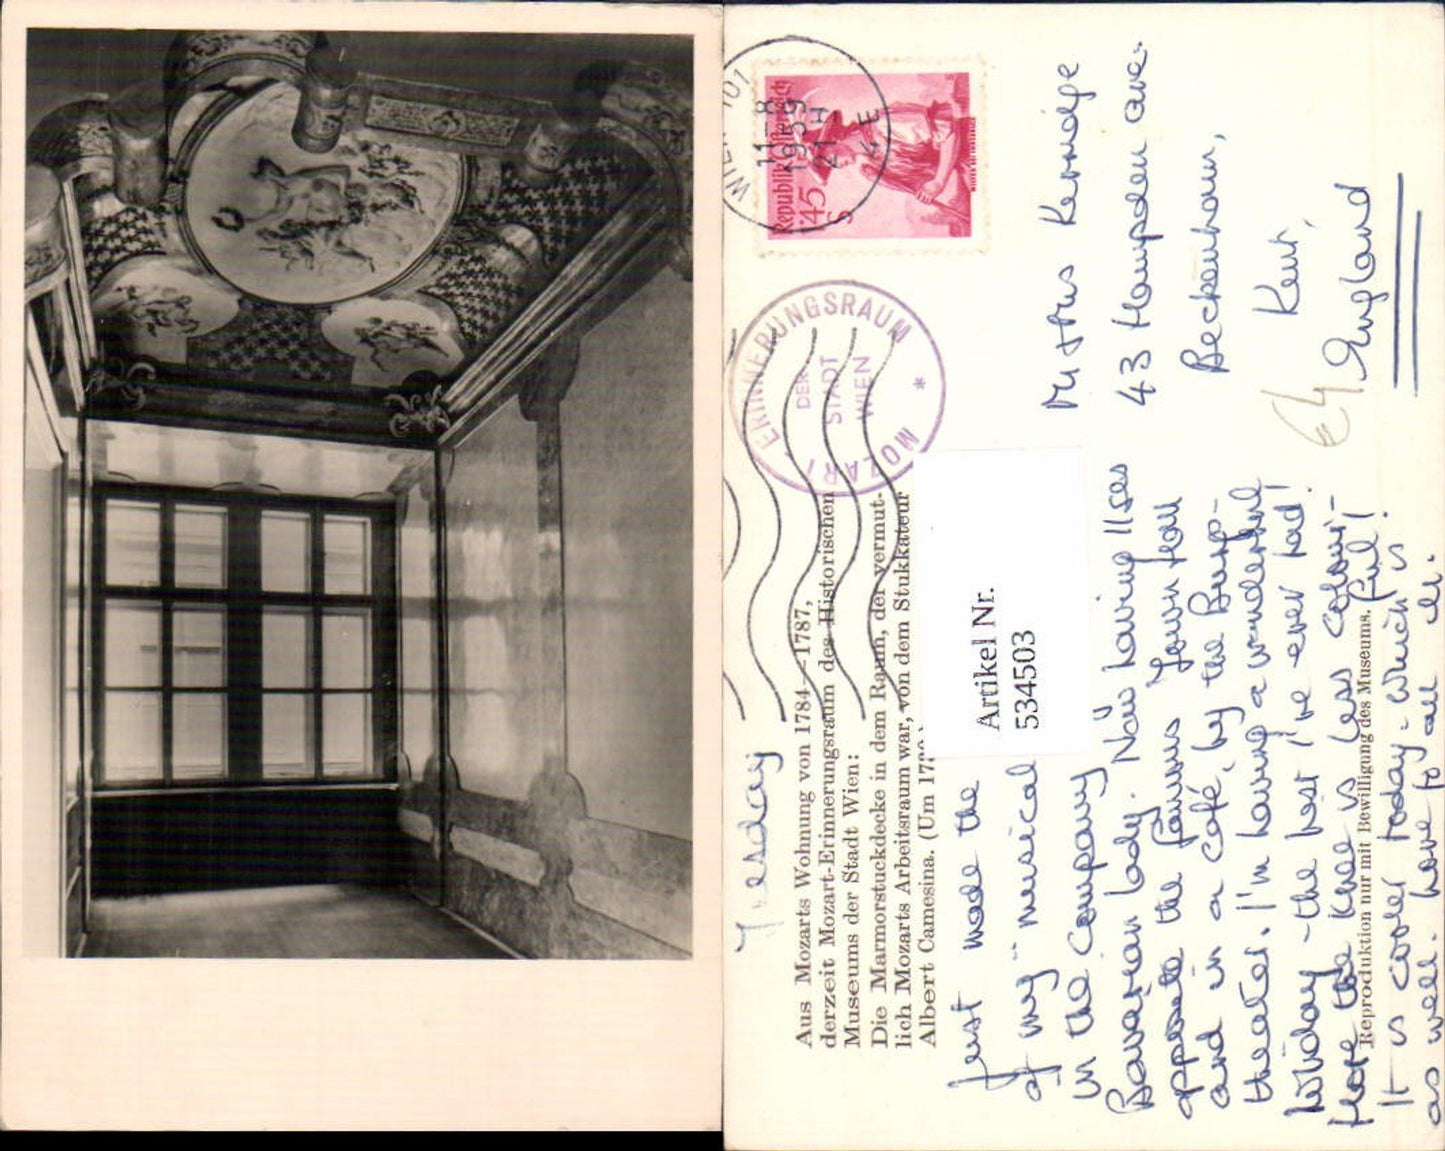 WIEN 101
11-8
1959
21 H
4 E
Republik Österreich
1'45
S
ERINNERUNGSRAUM
DER
STADT
WIEN
* MOZART
Tuesday
Aus Mozarts Wohnung von 1784—1787,
derzeit Mozart-Erinnerungsraum des Historischen
Museums der Stadt Wien:
Die Marmorstuckdecke in dem Raum, der vermut-
lich Mozarts Arbeitsraum war, von dem Stukkateur
Albert Camesina. (Um 17
Artikel Nr.
534503
Just made the
of my musical
in the company
Bavarian lady. Now having
opposite the famous Town Hall
and in a café, by the Burg-
theater. I'm having a wonderful
holiday - the best I've ever had!
Hope the knee is less colour-
ful!
It is cooler today - which is
as well. Love to all
Reproduktion nur mit Bewilligung des Museums.
43 Hampden Ave.
Beckenham,
Kent,
England